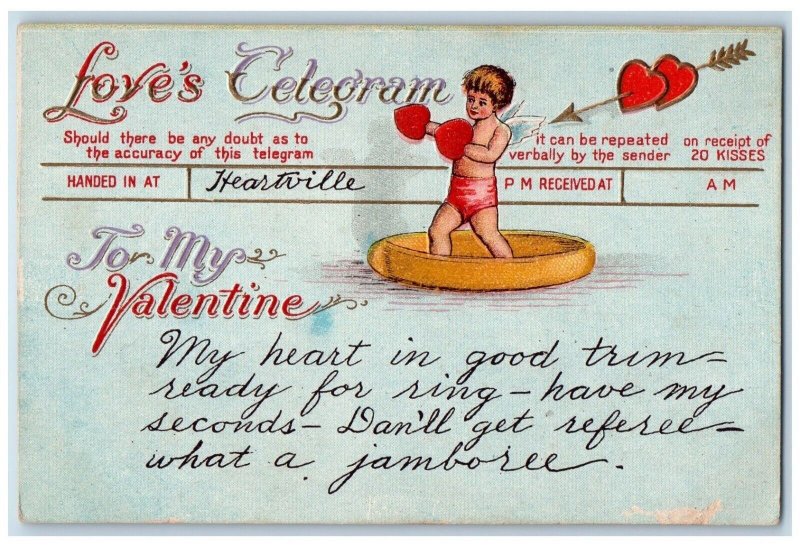 Love's Telegram
Should there be any doubt as to
the accuracy of this telegram
it can be repeated
verbally by the sender
on receipt of
20 KISSES
HANDED IN AT Heartville P M RECEIVED AT A M
To My
Valentine
My heart in good trim–
ready for ring – have my
seconds – Dan'll get referee –
what a jamboree.